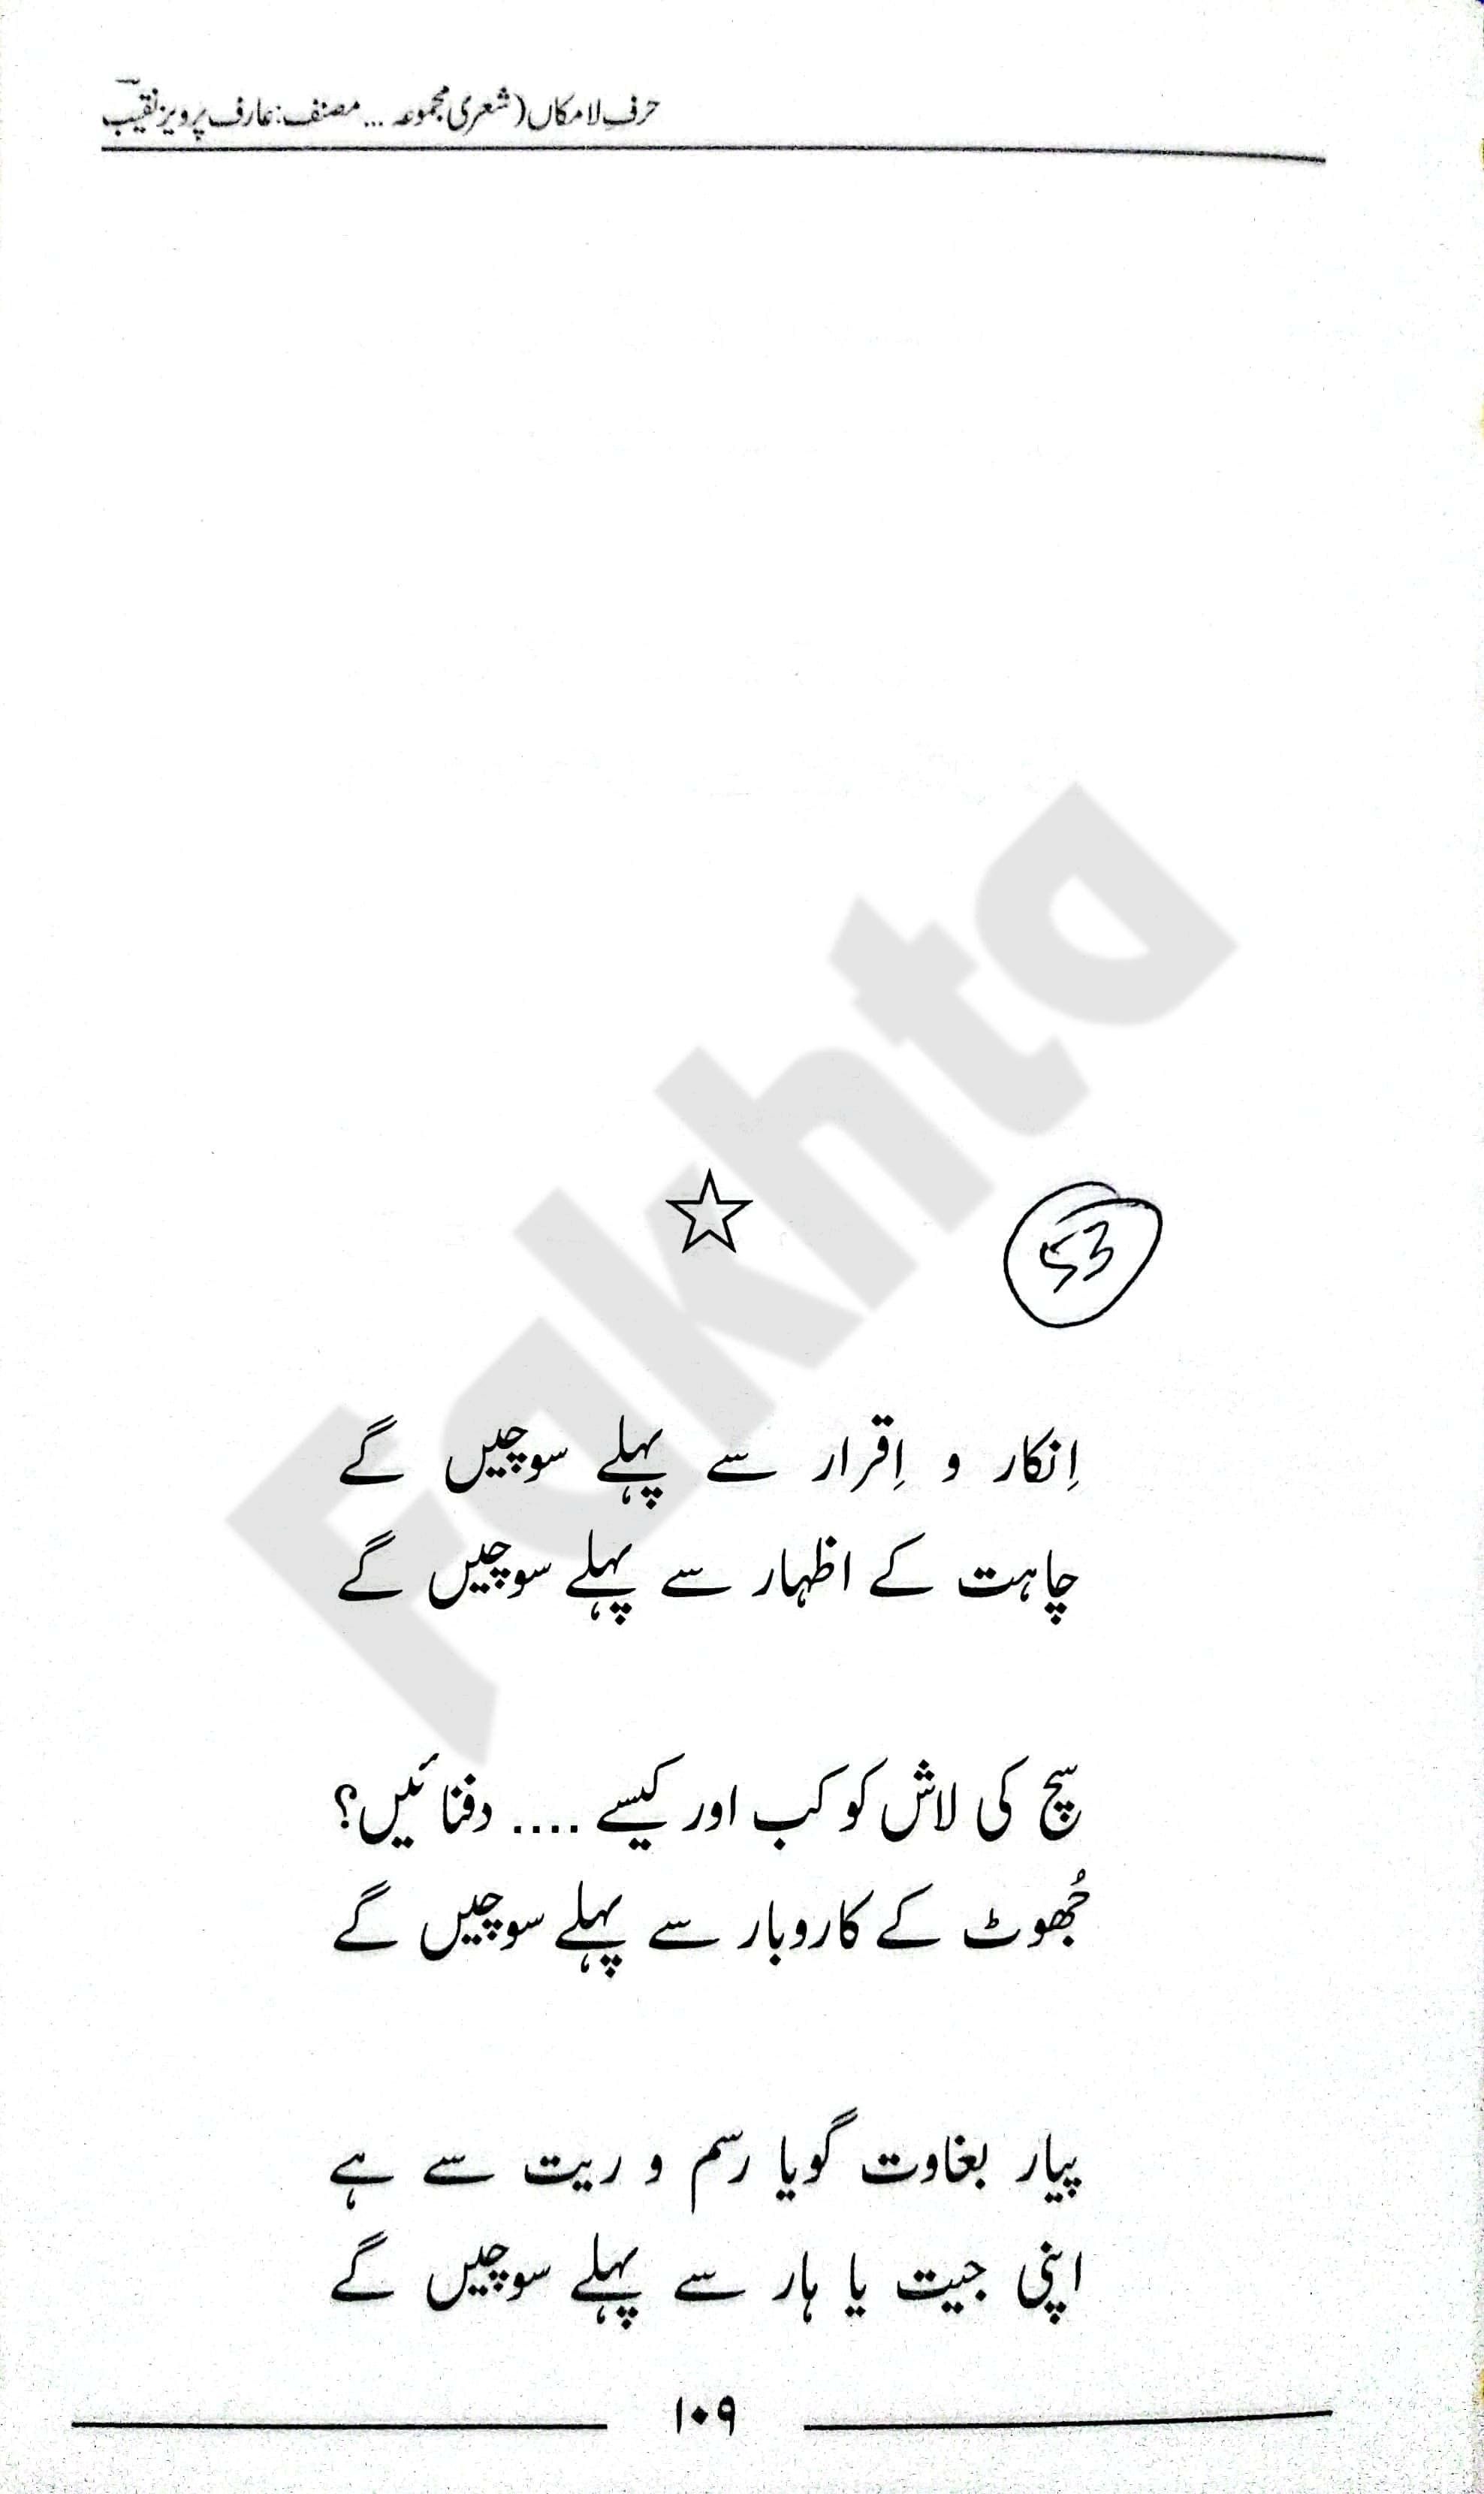 حرفِ لامکاں (شعری مجموعہ ... مصنف: عارف پرویز نقیبؔ
Fakhta
☆
53
اِنکار و اِقرار سے پہلے سوچیں گے
چاہت کے اظہار سے پہلے سوچیں گے
سچ کی لاش کو کب اور کیسے .... دفنائیں؟
جُھوٹ کے کاروبار سے پہلے سوچیں گے
پیار بغاوت گویا رسم و ریت سے ہے
اپنی جیت یا ہار سے پہلے سوچیں گے
۱۰۹